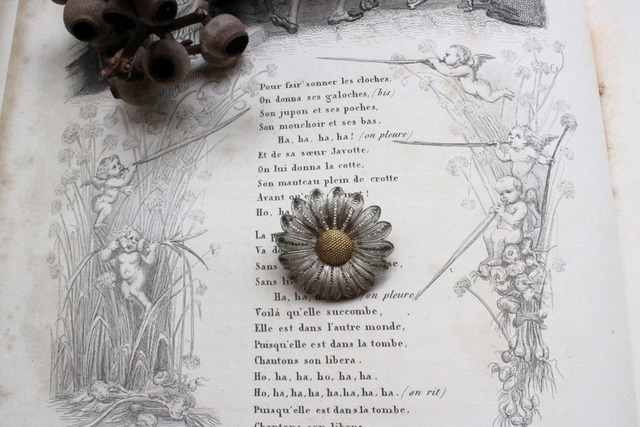 Pour fair' sonner les cloches,
On donna ses galoches, (bis)
Son jupon et ses poches,
Son mouchoir et ses bas.
Ha, ha, ha, ha! (on pleure)
Et de sa sœur Javotte,
On lui donna la cotte,
Son manteau plein de crotte
Avant qu'
Ho, ha,
La
Va
Sans
Sans
Ha, ha, (on pleure)
Voilà qu'elle succombe,
Elle est dans l'autre monde,
Puisqu'elle est dans la tombe,
Chantons son libera.
Ho, ha, ha, ho, ha, ha.
Ho, ha, ha, ha, ha, ha, ha, ha. (on rit)
Puisqu'elle est dans la tombe,
Chantons son libera.